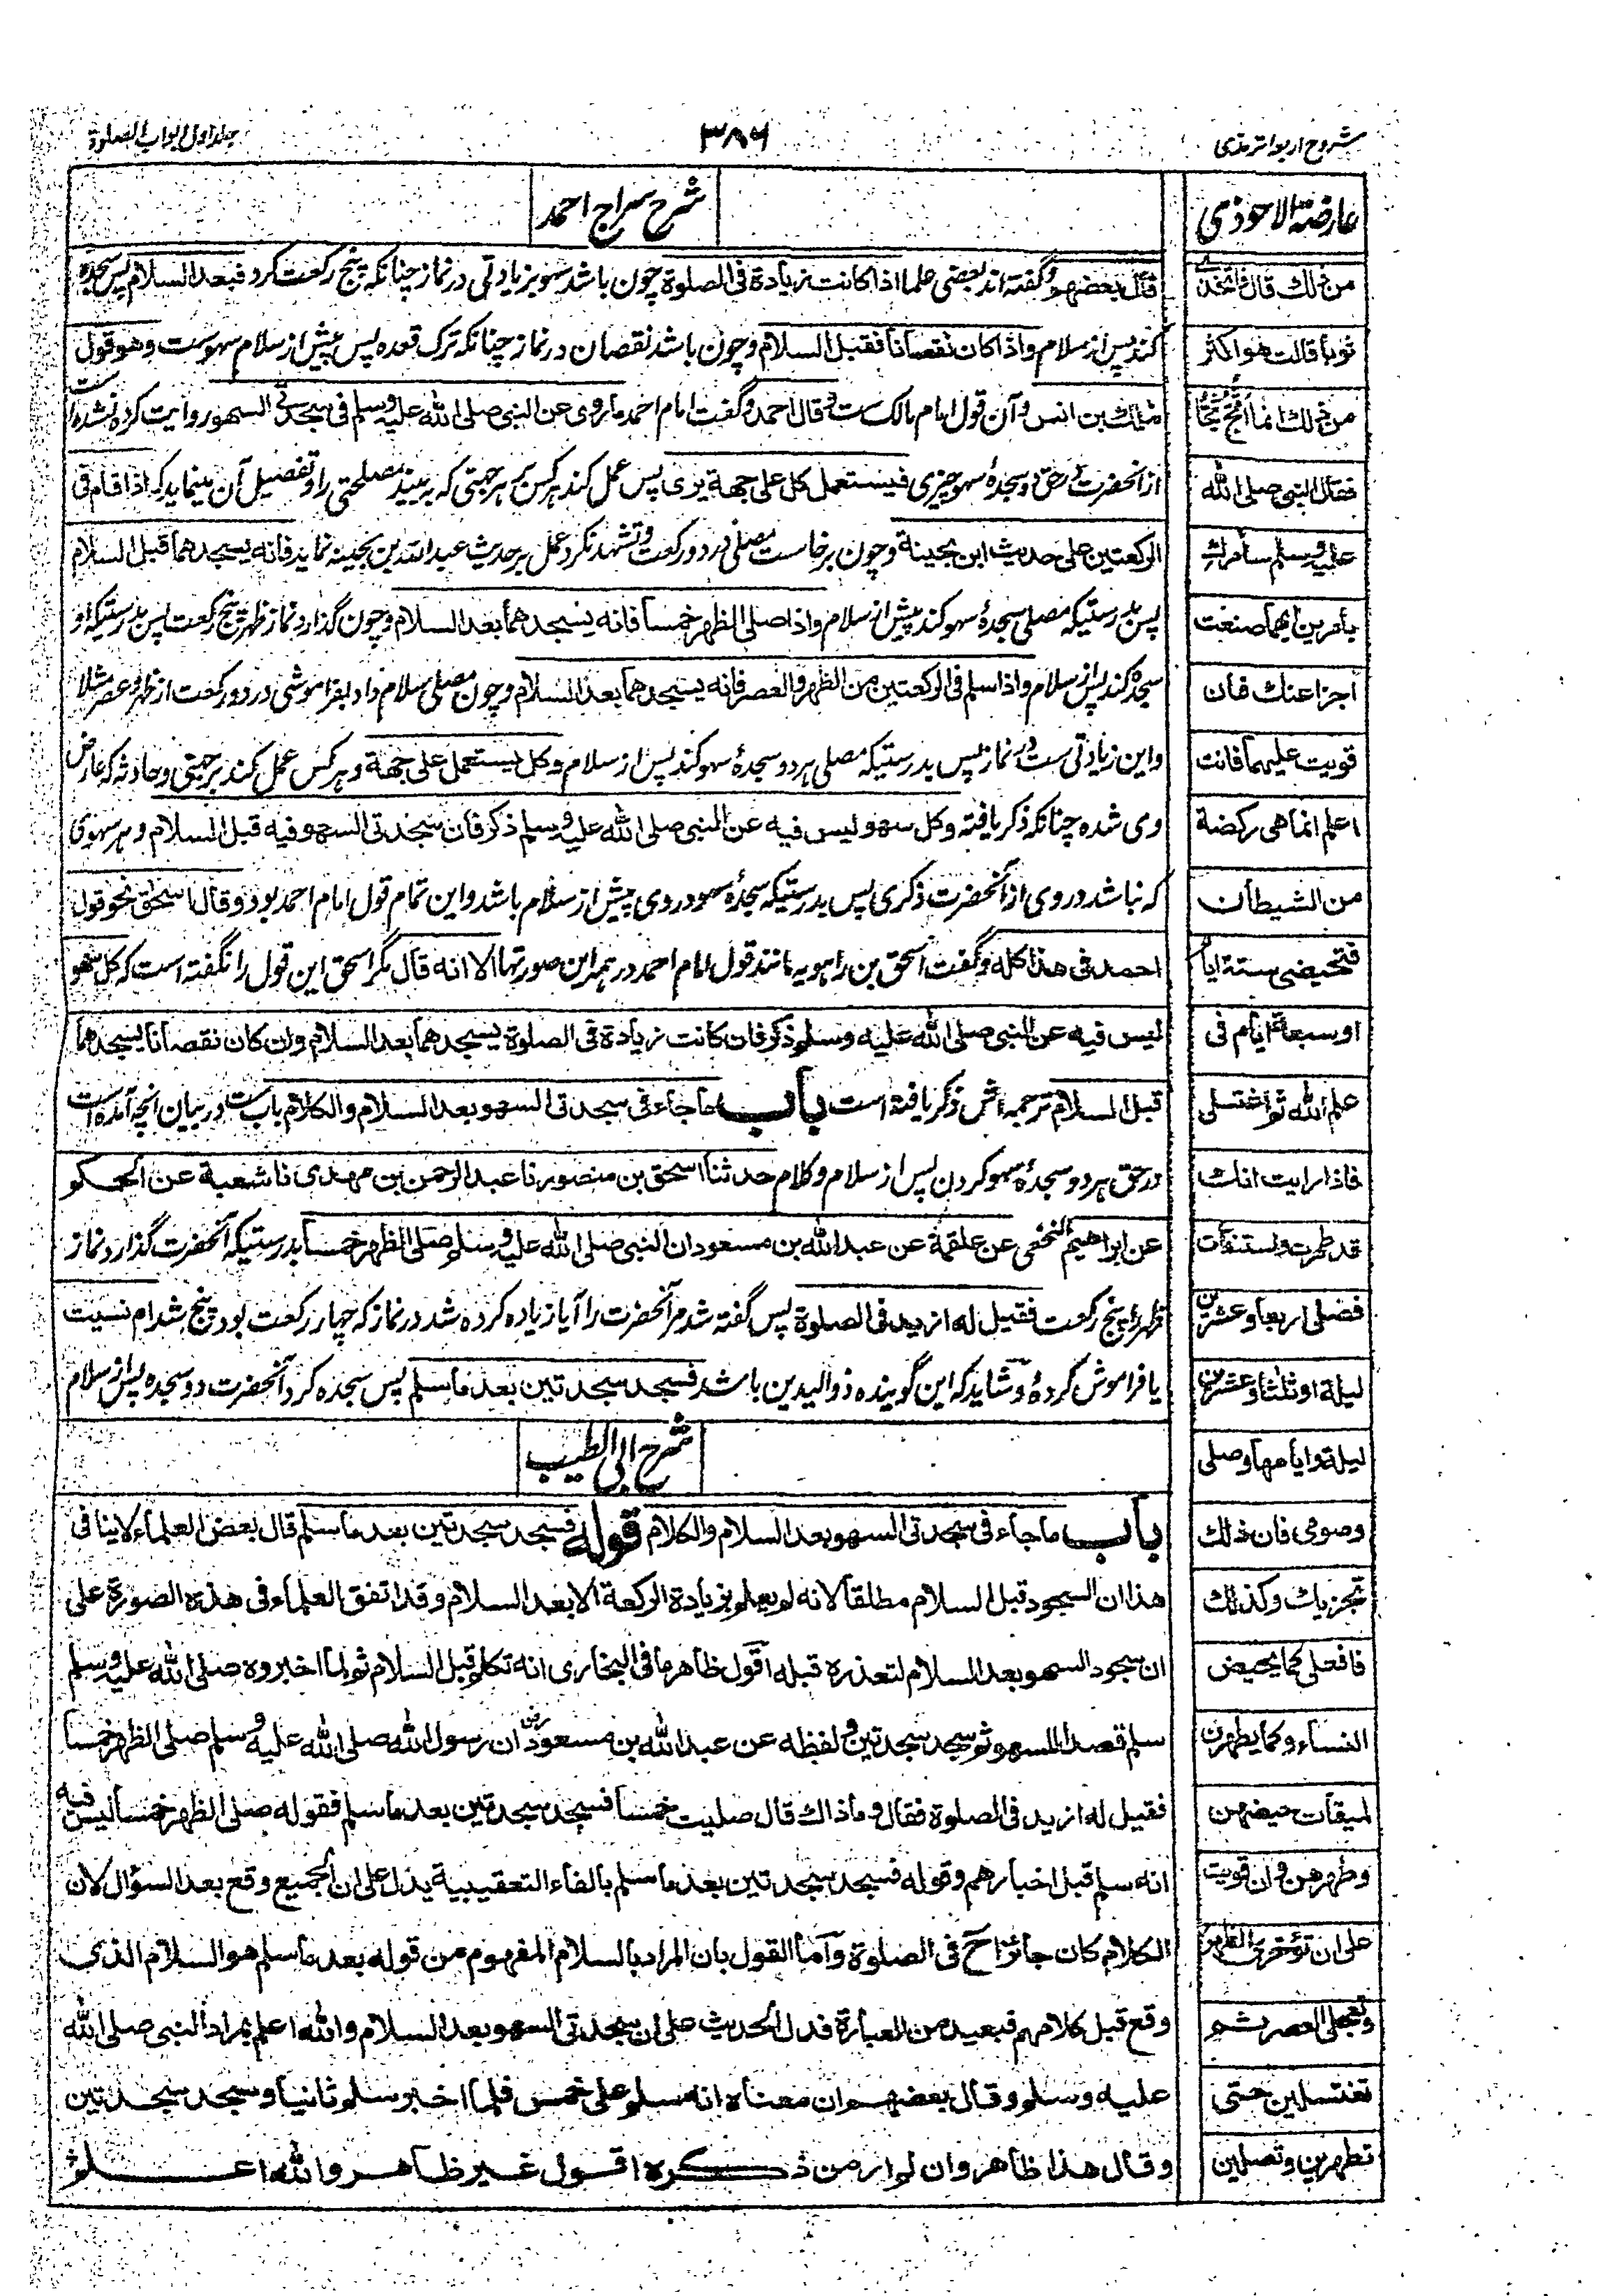 شروح اربعہ ترمذی
۳۸۶
جلد اول ابواب الصلوة
عارضة الاحوذی
من ذلك قال فاتخذی
ثوبا قالت هو اكثر
من ذلك انما اثج ثجا
فقال النبی صلی الله
علیه وسلم سأمرك
بأمرین ایهما صنعت
اجزا عنك فان
قویت علیهما فانت
اعلم انما هی ركضة
من الشیطان
فتحیضی ستة ایام
او سبعة ایام فی
علم الله ثم اغتسلی
فاذا رایت انك
قد طهرت واستنقأت
فصلی اربعا وعشرین
لیلة او ثلثا وعشرین
لیلة وایامها وصلی
وصومی فان ذلك
تجزیك وكذلك
فافعلی كما یحیض
النساء وكما یطهرن
لمیقات حیضهن
وطهرهن وان قویت
علی ان تؤخرین الظهر
وتعجلی العصر ثم
تغتسلین حتی
تطهرین وتصلین
شرح سراج احمد
قال بعضهم وگفته اند بعضی علما اذا كانت زیادة فی الصلوة چون باشد سهو بزیادتی در نماز چنانكه پنج ركعت كرد فبعد السلام پس سجده
كند پس از سلام واذا كان نقصانا فقبل السلام وچون باشد نقصان در نماز چنانكه ترك قعده پس پیش از سلام سهوست وهو قول
مالك بن انس وآن قول امام مالك ست وقال احمد وگفت امام احمد ما روی عن النبی صلی الله علیه وسلم فی سجدتی السهو روایت كرده شده است
از آنحضرت در حق دو سجدهٔ سهو چیزی فیستعمل كل علی جهة یری پس عمل كند هر كس بر هر جهتی كه بر بیند مصلحتی را وتفصیل آن مینماید كه اذا قام فی
الركعتین علی حدیث ابن بحینة وچون برخاست مصلی در دو ركعت وتشهد نكرد عمل بر حدیث عبد الله بن بحینه نماید فانه یسجدهما قبل السلام
پس بدرستیكه مصلی سجدهٔ سهو كند پیش از سلام واذا صلی الظهر خمسا فانه یسجدهما بعد السلام وچون گذارد نماز ظهر پنج ركعت پس بدرستیكه او
سجده كند پس از سلام واذا سلم فی الركعتین من الظهر والعصر فانه یسجدهما بعد السلام وچون مصلی سلام داد بفراموشی در دو ركعت از ظهر وعصر مثلا
واین زیادتی ست در نماز پس بدرستیكه مصلی هر دو سجدهٔ سهو كند پس از سلام وكل یستعمل علی جهة وهر كس عمل كند بر جهتی وحادثه كه عارض
وی شده چنانكه ذكر یافته وكل سهو لیس فیه عن النبی صلی الله علیه وسلم ذكر فان سجدتی السهو فیه قبل السلام وهر سهوی
كه نباشد در وی از آنحضرت ذكری پس بدرستیكه سجدهٔ سهو در وی پیش از سلام باشد واین تمام قول امام احمد بود وقال اسحق نحو قول
احمد فی هذا كله وگفت اسحق بن راهویه مانند قول امام احمد در همه این صورتها الا انه قال مگر اسحق این قول را نگفته است كه كل سهو
لیس فیه عن النبی صلی الله علیه وسلم ذكر فان كانت زیادة فی الصلوة یسجدهما بعد السلام وان كان نقصانا یسجدهما
قبل السلام ترجمه اش ذكر یافته است باب ما جاء فی سجدتی السهو بعد السلام والكلام باب ست در بیان آنچه آمده است
در حق هر دو سجدهٔ سهو كردن پس از سلام وكلام حدثنا اسحق بن منصور نا عبد الرحمن بن مهدی نا شعبة عن الحكم
عن ابراهیم النخعی عن علقمة عن عبد الله بن مسعود ان النبی صلی الله علیه وسلم صلی الظهر خمسا بدرستیكه آنحضرت گذارد نماز
ظهر را پنج ركعت فقیل له ازید فی الصلوة پس گفته شد مر آنحضرت را آیا زیاده كرده شد در نماز كه چهار ركعت بود پنج شد ام نسیت
یا فراموش كردهٔ وشاید كه این گوینده ذو الیدین باشد فسجد سجدتین بعد ما سلم پس سجده كرد آنحضرت دو سجده پس از سلام
شرح ابی الطیب
باب ما جاء فی سجدتی السهو بعد السلام والكلام قوله فسجد سجدتین بعد ما سلم قال بعض العلماء لا ینافی
هذا ان السجود قبل السلام مطلقا لانه لم یعلم بزیادة الركعة الا بعد السلام وقد اتفق العلماء فی هذه الصورة علی
ان سجود السهو بعد السلام لتعذره قبله اقول ظاهر ما فی البخاری انه تكلم قبل السلام ثم لما اخبروه صلی الله علیه وسلم
سلم قصدا للسهو ثم سجد سجدتین ولفظه عن عبد الله بن مسعود رض ان رسول الله صلی الله علیه وسلم صلی الظهر خمسا
فقیل له ازید فی الصلوة فقال وما ذاك قال صلیت خمسا فسجد سجدتین بعد ما سلم فقوله صلی الظهر خمسا لیس فیه
انه سلم قبل اخبارهم وقوله فسجد سجدتین بعد ما سلم بالفاء التعقیبیة یدل علی ان الجمیع وقع بعد السؤال لان
الكلام كان جائزا ح فی الصلوة واما القول بان المراد بالسلام المفهوم من قوله بعد ما سلم هو السلام الذی
وقع قبل كلامهم فبعید من العبارة فدل الحدیث علی ان سجدتی السهو بعد السلام والله اعلم بمراد النبی صلی الله
علیه وسلم وقال بعضهم ان معناه انه سلم علی خمس فلما اخبر سلم ثانیا وسجد سجدتین
وقال هذا ظاهر وان لم ار من ذكره اقول غیر ظاهر والله اعلم